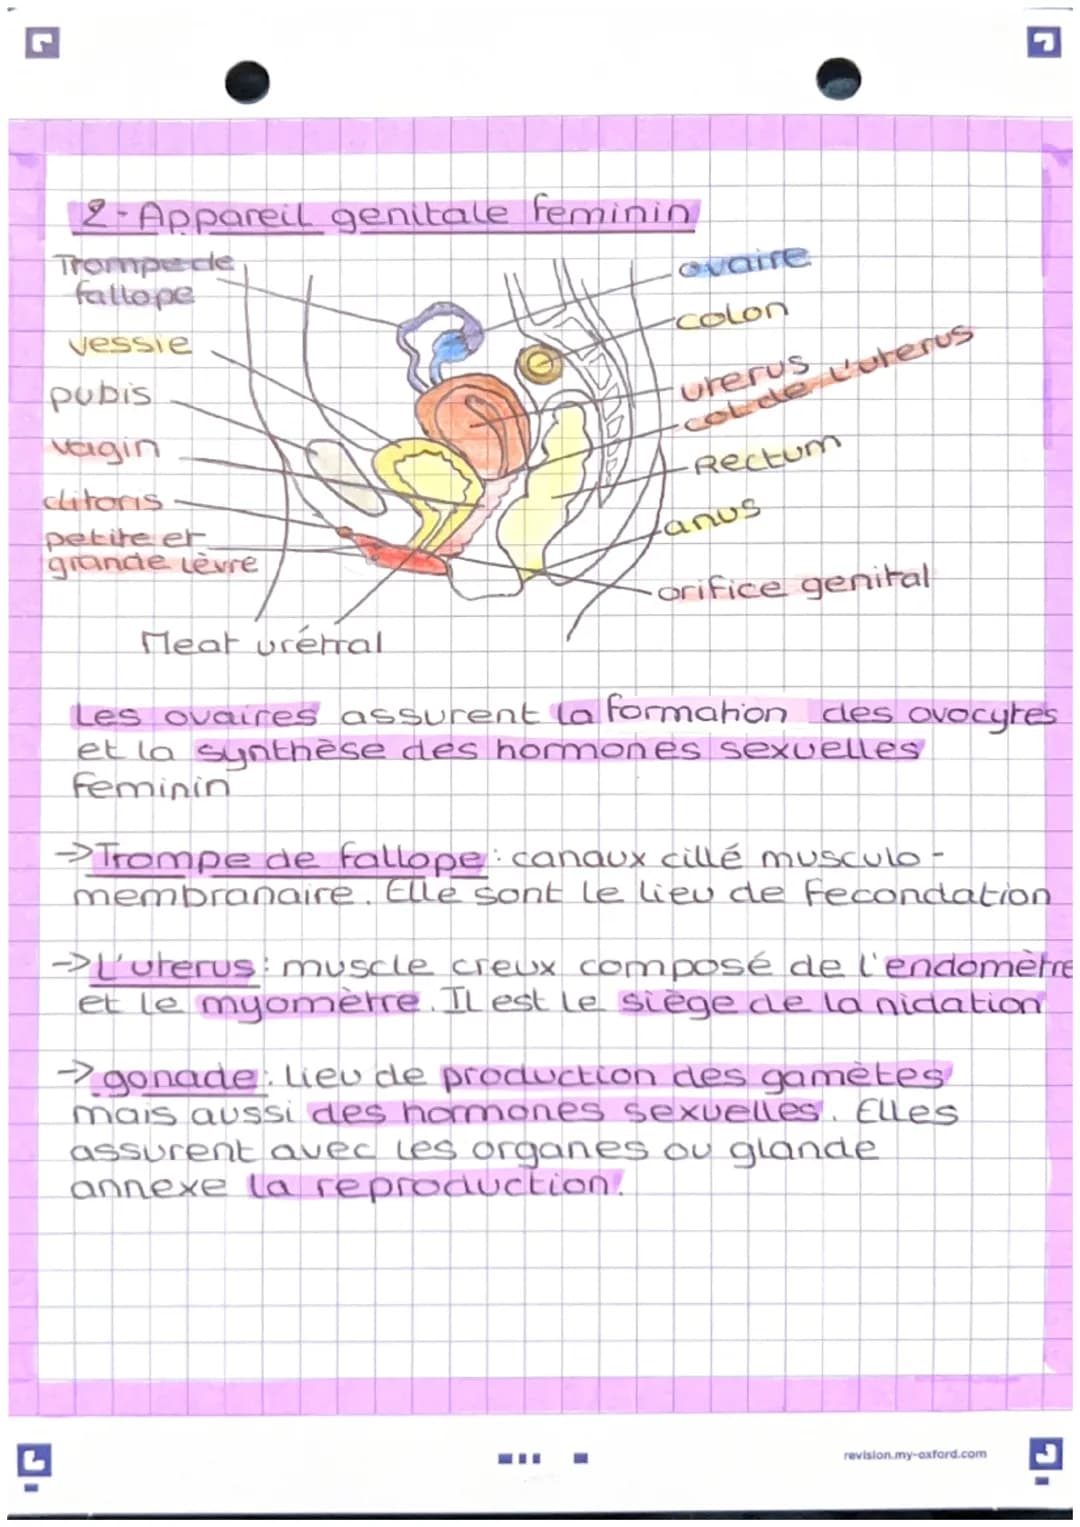 2-Appareil genitale feminin
Trompe de
fallope
vessie
pubis
vagin
clitoris
petite et
grande lèvre
Meat urétral
ovaire
colon
uterus
col de l'uterus
Rectum
anus
orifice genital
Les ovaires assurent la formation des ovocytes
et la synthèse des hormones sexuelles
feminin
->Trompe de fallope: canaux cillé musculo-
membranaire. Elle sont le lieu de fecondation
->L'uterus: muscle creux composé de l'endomètre
et le myomètre. IL est le siège de la nidation
->gonade: lieu de production des gamètes
mais aussi des hormones sexuelles. Elles
assurent avec les organes ou glande
annexe la reproduction.
revision.my-oxford.com